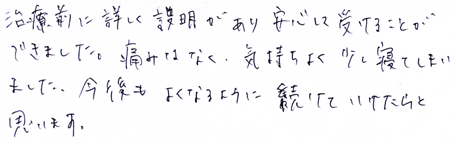 治療前に詳しく説明があり安心して受けることが
できました。痛みはなく、気持ちよく少し寝てしまい
ました。今後もよくなるように続けていけたらと
思います。